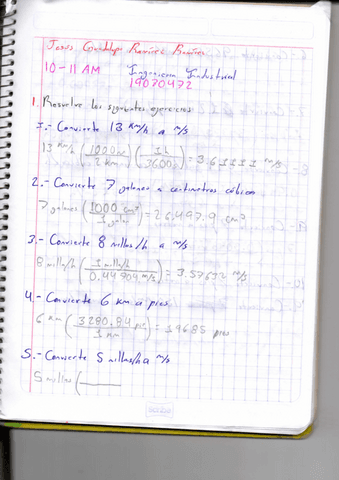 Jesus Guadalupe Ramirez Ramirez
10-11 AM Ingenieria Industrial
19070472
1. Resuelve los siguientes ejercicios
1.- Convierte 13 km/h a m/s
13 km/h (1000 m / 1 km) (1 h / 3600) = 3.61111 m/s
2.- Convierte 7 galones a centimetros cúbicos
7 galones (1000 cm³ / 1 galon) = 26,497.9 cm³
3.- Convierte 8 millas/h a m/s
8 millas/h (1 milla/h / 0.44704 m/s) = 3.57632 m/s
4.- Convierte 6 km a pies
6 km (3280.84 pies / 1 km) = 19685 pies
5.- Convierte 5 millas/h a m/s
5 millas (